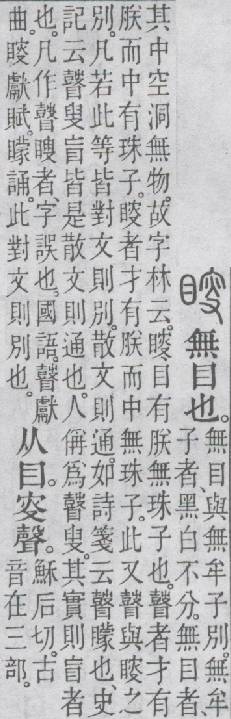 瞍 無目也。
無目與無牟子別。無牟
子者、黑白不分。無目者、
其中空洞無物。故字林云。瞍、目有眹無珠子也。瞽者才有
眹而中有珠子。瞍者才有眹而中無珠子。此又瞽與瞍之
別。凡若此等皆對文則別。散文則通。如詩箋云瞽矇也、史
記云瞽叟盲皆是散文則通也。人偁爲瞽叟。其實則盲者
也。凡作瞽瞍者、字誤也。國語、瞽獻
曲。瞍獻賦。矇誦。此對文則別也。
从目。叜聲。
穌后切。古
音在三部。